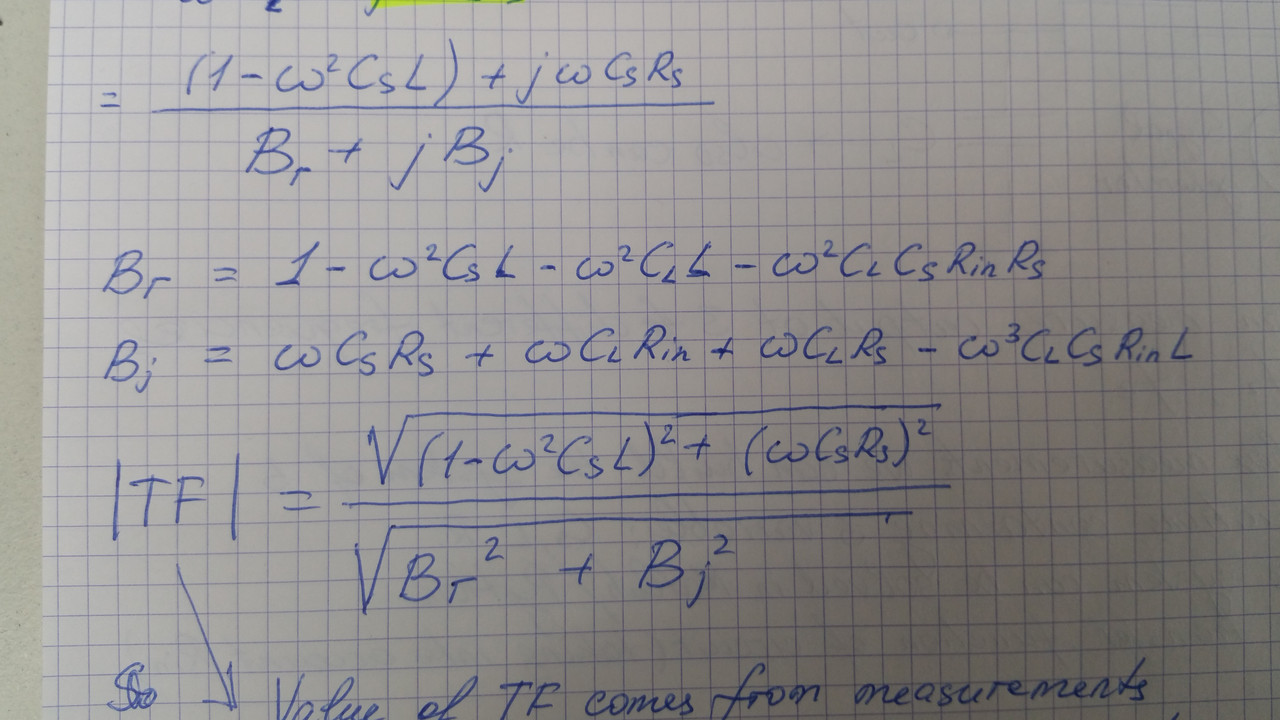 = (1-ω²C_S L) + jωC_S R_S / B_r + jB_j
B_r = 1 - ω²C_S L - ω²C_L L - ω²C_L C_S R_in R_S
B_j = ωC_S R_S + ωC_L R_in + ωC_L R_S - ω³C_L C_S R_in L
|TF| = √((1-ω²C_S L)² + (ωC_S R_S)²) / √(B_r² + B_j²)
So → Value of TF comes from measurements